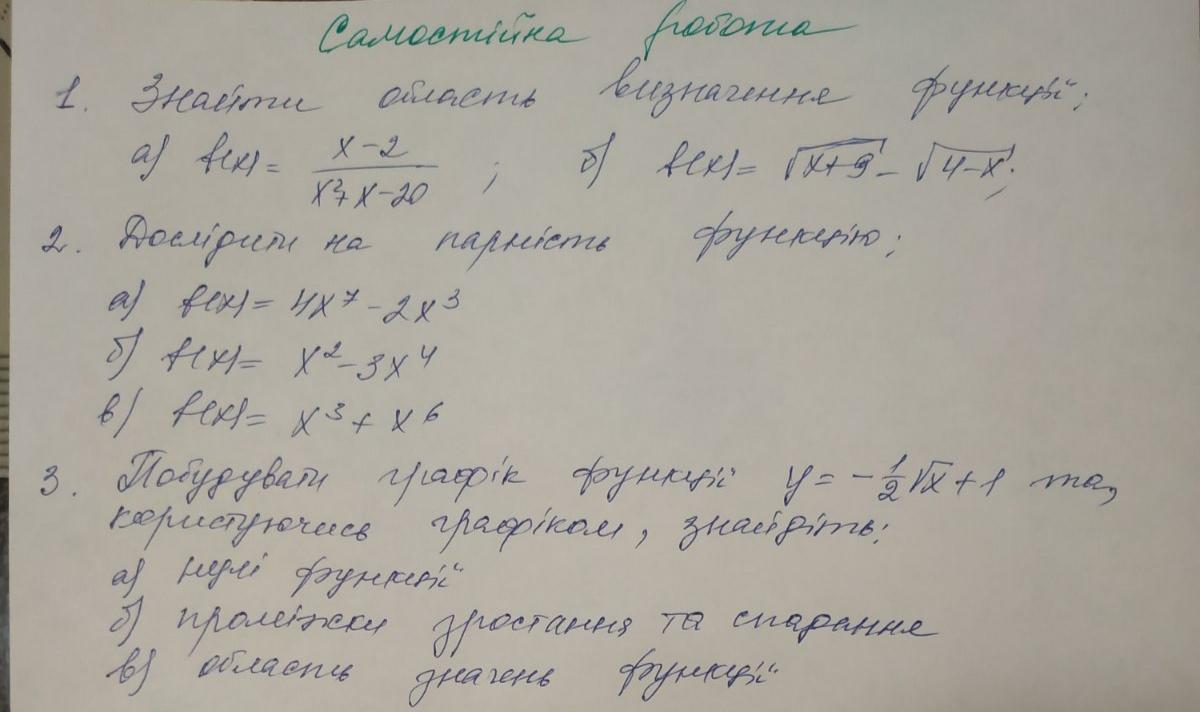 Самостійна робота
1. Знайти область визначення функції:
а) f(x) = (x-2)/(x²+x-20) ; б) f(x) = √(x+9) - √(4-x);
2. Дослідити на парність функцію:
а) f(x) = 4x⁷ - 2x³
б) f(x) = x² - 3x⁴
в) f(x) = x³ + x⁶
3. Побудувати графік функції y = -½√x + 1 та,
користуючись графіком, знайдіть:
а) нулі функції
б) проміжки зростання та спадання
в) область значень функції